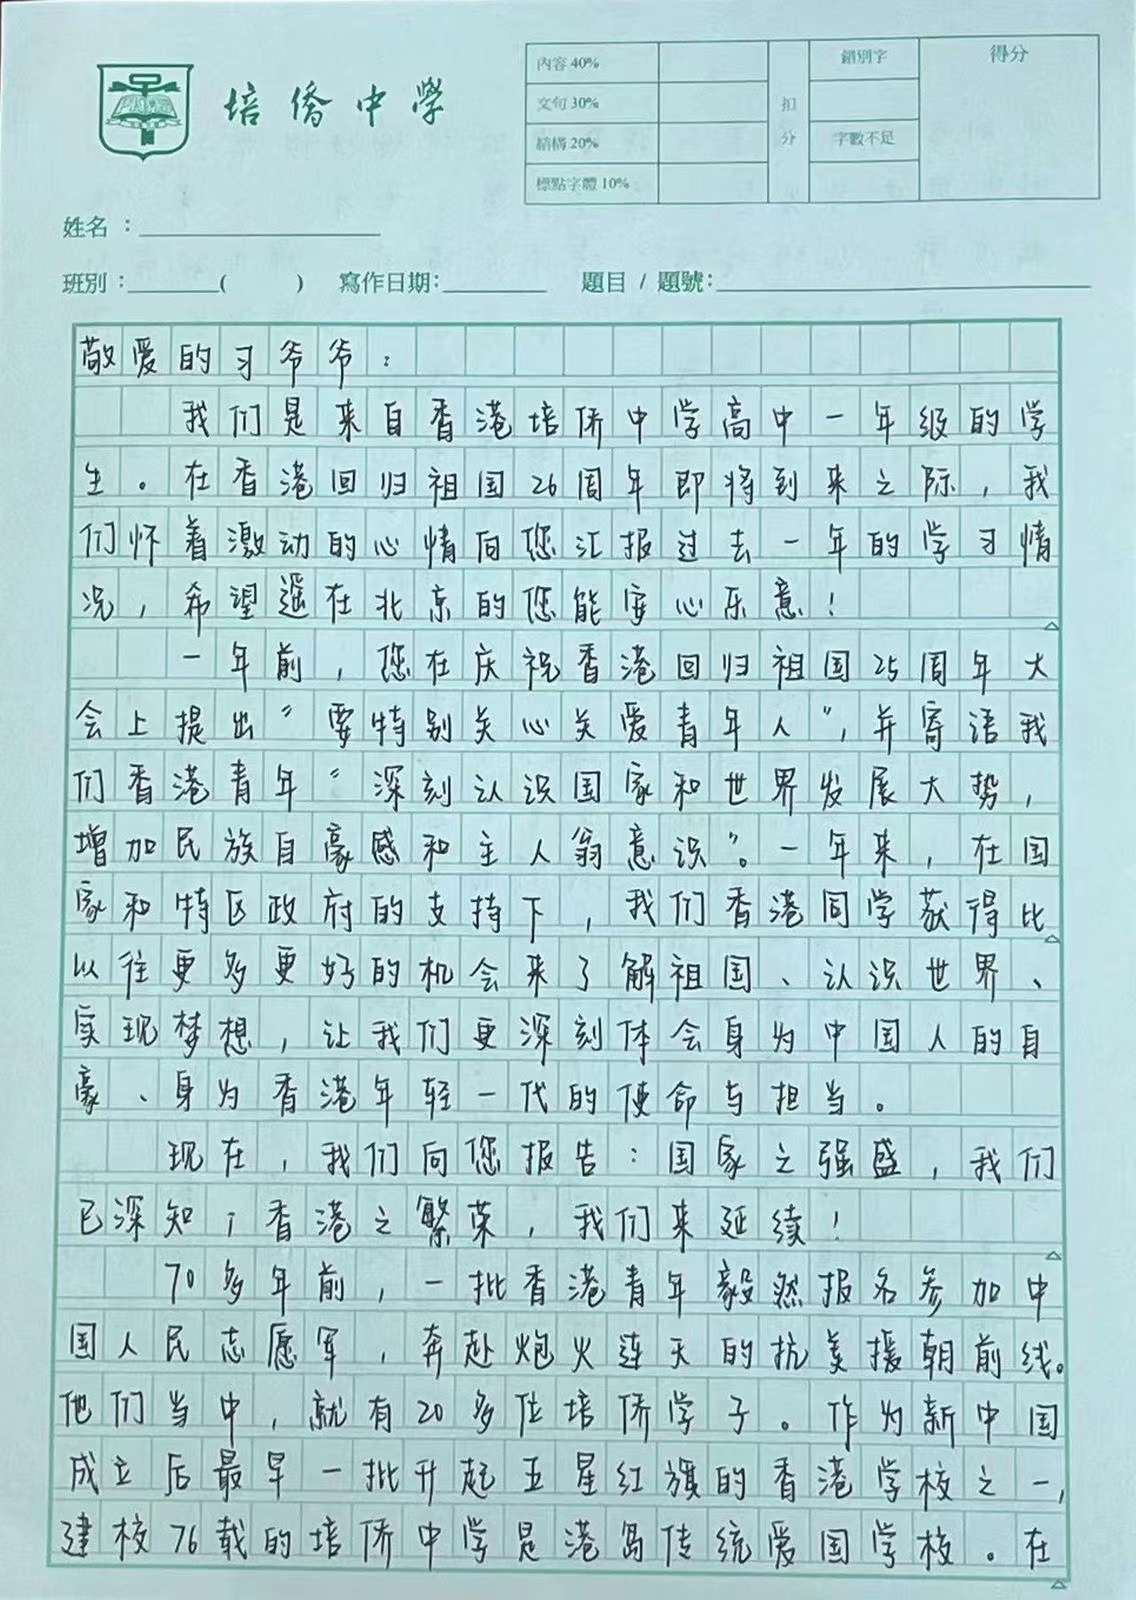 培僑中學
內容40%
文句30%
結構20%
標點字體10%
扣分
錯別字
字數不足
得分
姓名：
班別：（ ） 寫作日期： 題目 / 題號：
敬爱的习爷爷：
我们是来自香港培侨中学高中一年级的学
生。在香港回归祖国26周年即将到来之际，我
们怀着激动的心情向您汇报过去一年的学习情
况，希望遥在北京的您能安心乐意！
一年前，您在庆祝香港回归祖国25周年大
会上提出“要特别关心关爱青年人”，并寄语我
们香港青年“深刻认识国家和世界发展大势，
增加民族自豪感和主人翁意识”。一年来，在国
家和特区政府的支持下，我们香港同学获得比
以往更多更好的机会来了解祖国、认识世界、
实现梦想，让我们更深刻体会身为中国人的自
豪、身为香港年轻一代的使命与担当。
现在，我们向您报告：国家之强盛，我们
已深知；香港之繁荣，我们来延续！
70多年前，一批香港青年毅然报名参加中
国人民志愿军，奔赴炮火连天的抗美援朝前线。
他们当中，就有20多位培侨学子。作为新中国
成立后最早一批升起五星红旗的香港学校之一，
建校76载的培侨中学是港岛传统爱国学校。在